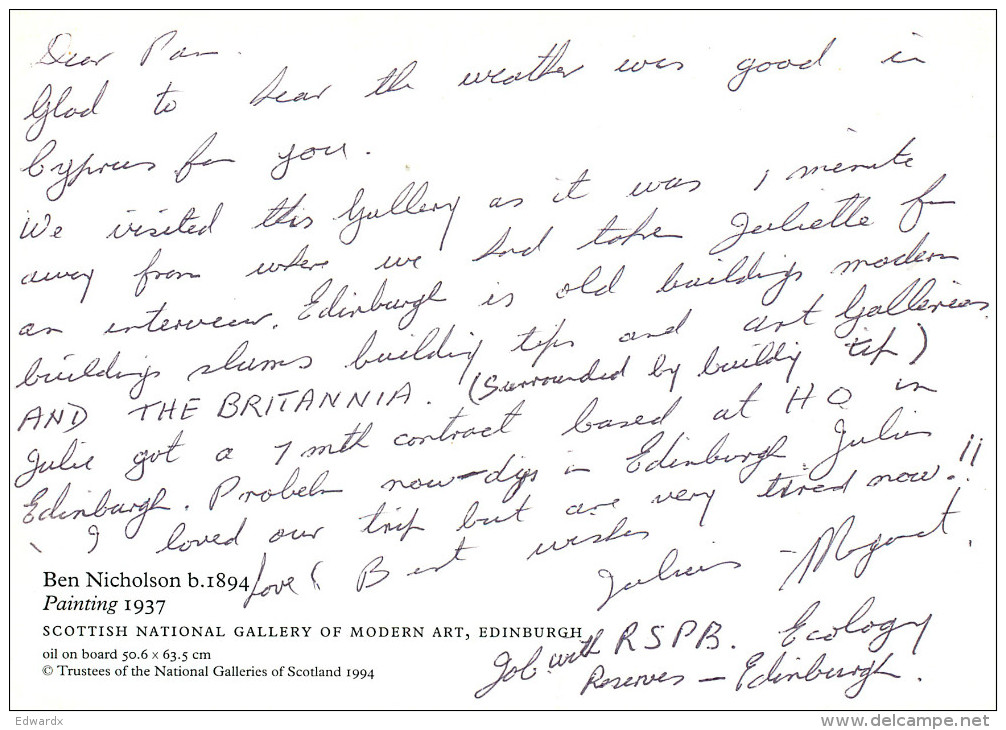 Dear Pam.
Glad to hear the weather was good in
Cyprus for you.
We visited this Gallery as it was 1 minute
away from where we had taken Juliette for
an interview. Edinburgh is old buildings modern
buildings slums building tips and art Galleries
AND THE BRITANNIA. (Surrounded by buildig tip)
Julie got a 7 mth contract based at HQ in
Edinburgh. Problem now - digs in Edinburgh Julius
& I loved our trip but are very tired now!!
Love & Best wishes
Julius - Margaret.
Ben Nicholson b.1894
Painting 1937
SCOTTISH NATIONAL GALLERY OF MODERN ART, EDINBURGH
oil on board 50.6 × 63.5 cm
© Trustees of the National Galleries of Scotland 1994
Job with RSPB. Ecology
Reserves - Edinburgh.
Edwardx
www.delcampe.net